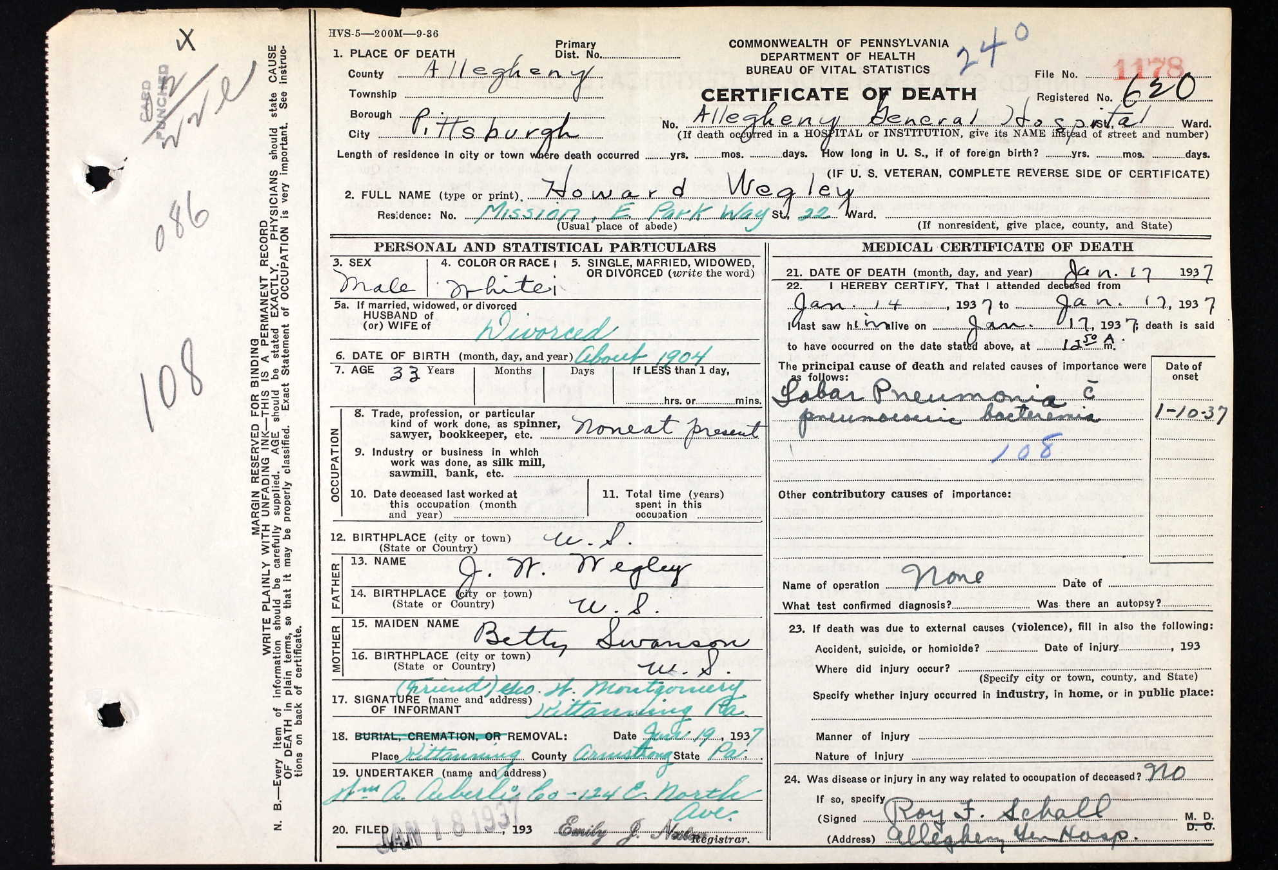 HVS-5—200M—9-36
COMMONWEALTH OF PENNSYLVANIA
DEPARTMENT OF HEALTH
BUREAU OF VITAL STATISTICS
240
CERTIFICATE OF DEATH
File No. 1178
Registered No. 620
1. PLACE OF DEATH
Primary
Dist. No.
County Allegheny
Township
Borough
City Pittsburgh
No. Allegheny General Hospital Ward.
(If death occurred in a HOSPITAL or INSTITUTION, give its NAME instead of street and number)
Length of residence in city or town where death occurred ........yrs. ........mos. ........days. How long in U. S., if of foreign birth? ........yrs. ........mos. ........days.
(IF U. S. VETERAN, COMPLETE REVERSE SIDE OF CERTIFICATE)
2. FULL NAME (type or print). Howard Wegley
Residence: No. Mission, E Park Way St. 22 Ward.
(Usual place of abode) (If nonresident, give place, county, and State)
PERSONAL AND STATISTICAL PARTICULARS
3. SEX
Male
4. COLOR OR RACE
White
5. SINGLE, MARRIED, WIDOWED,
OR DIVORCED (write the word)
5a. If married, widowed, or divorced
HUSBAND of
(or) WIFE of
Divorced
6. DATE OF BIRTH (month, day, and year) About 1904
7. AGE 33 Years Months Days If LESS than 1 day,
........hrs. or ........mins.
OCCUPATION
8. Trade, profession, or particular
kind of work done, as spinner,
sawyer, bookkeeper, etc. None at present
9. Industry or business in which
work was done, as silk mill,
sawmill, bank, etc.
10. Date deceased last worked at
this occupation (month
and year)
11. Total time (years)
spent in this
occupation
12. BIRTHPLACE (city or town)
(State or Country) U. S.
FATHER
13. NAME J. W. Wegley
14. BIRTHPLACE (city or town)
(State or Country) U. S.
MOTHER
15. MAIDEN NAME Betty Swanson
16. BIRTHPLACE (city or town)
(State or Country) U. S.
(Friend) Geo. W. Montgomery
17. SIGNATURE (name and address)
OF INFORMANT Kittanning Pa
18. BURIAL, CREMATION, OR REMOVAL: Date Jan 19, 1937
Place Kittanning County Armstrong State Pa.
19. UNDERTAKER (name and address)
Wm A. Co - 124 E. North
Ave.
20. FILED JAN 18 1937, 193 Emily J. Registrar.
MEDICAL CERTIFICATE OF DEATH
21. DATE OF DEATH (month, day, and year) Jan. 17 1937
22. I HEREBY CERTIFY, That I attended deceased from
Jan. 14, 1937 to Jan. 17, 1937
I last saw him alive on Jan. 17, 1937; death is said
to have occurred on the date stated above, at 12 50 A. m.
The principal cause of death and related causes of importance were
as follows:
Date of
onset
Lobar Pneumonia c̄
pneumococcic bacteremia
1-10-37
108
Other contributory causes of importance:
Name of operation None Date of
What test confirmed diagnosis? Was there an autopsy?
23. If death was due to external causes (violence), fill in also the following:
Accident, suicide, or homicide? Date of injury, 193
Where did injury occur?
(Specify city or town, county, and State)
Specify whether injury occurred in industry, in home, or in public place:
Manner of injury
Nature of injury
24. Was disease or injury in any way related to occupation of deceased? No
If so, specify
(Signed Roy F. Schall M. D.
D. O.
(Address) Allegheny Gen Hosp.
MARGIN RESERVED FOR BINDING
WRITE PLAINLY WITH UNFADING INK—THIS IS A PERMANENT RECORD
N. B.—Every item of information should be carefully supplied. AGE should be stated EXACTLY. PHYSICIANS should state CAUSE
OF DEATH in plain terms, so that it may be properly classified. Exact Statement of OCCUPATION is very important. See instruc-
tions on back of certificate.
CARD
PUNCHED
X
086
108